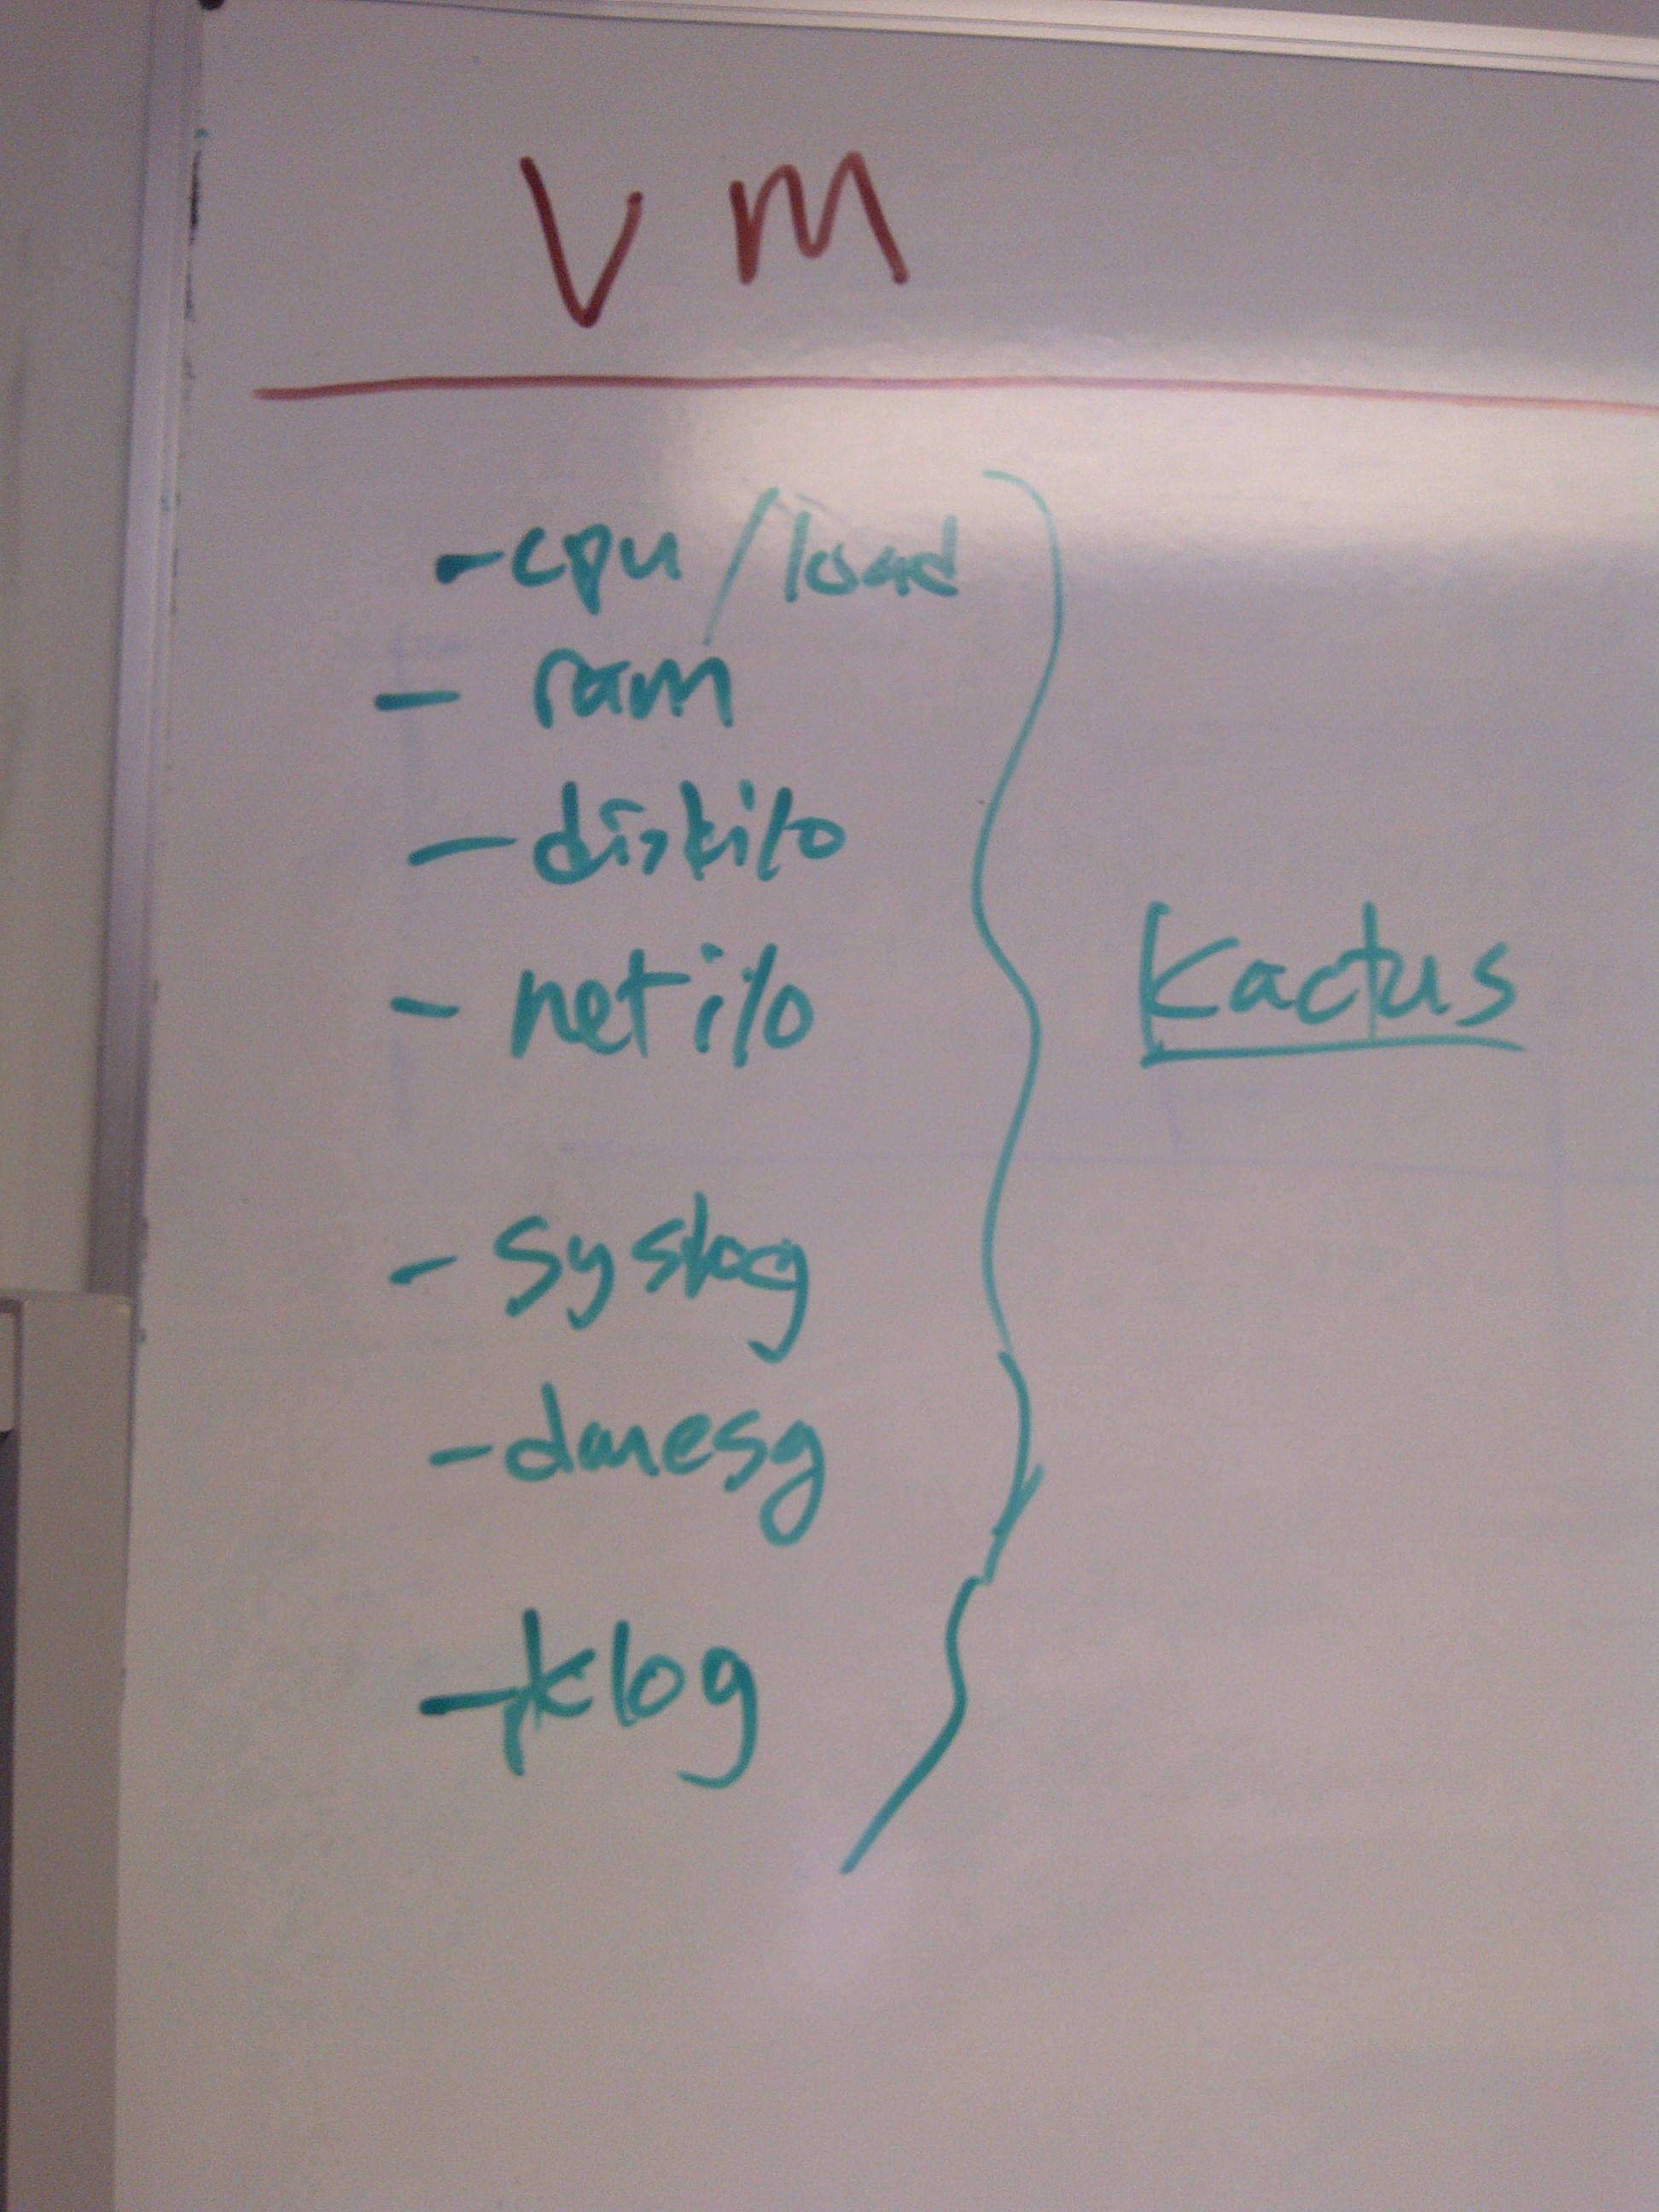 VM
- cpu / load
- ram
- disk i/o
- net i/o
Kactus
- syslog
- dmesg
- klog